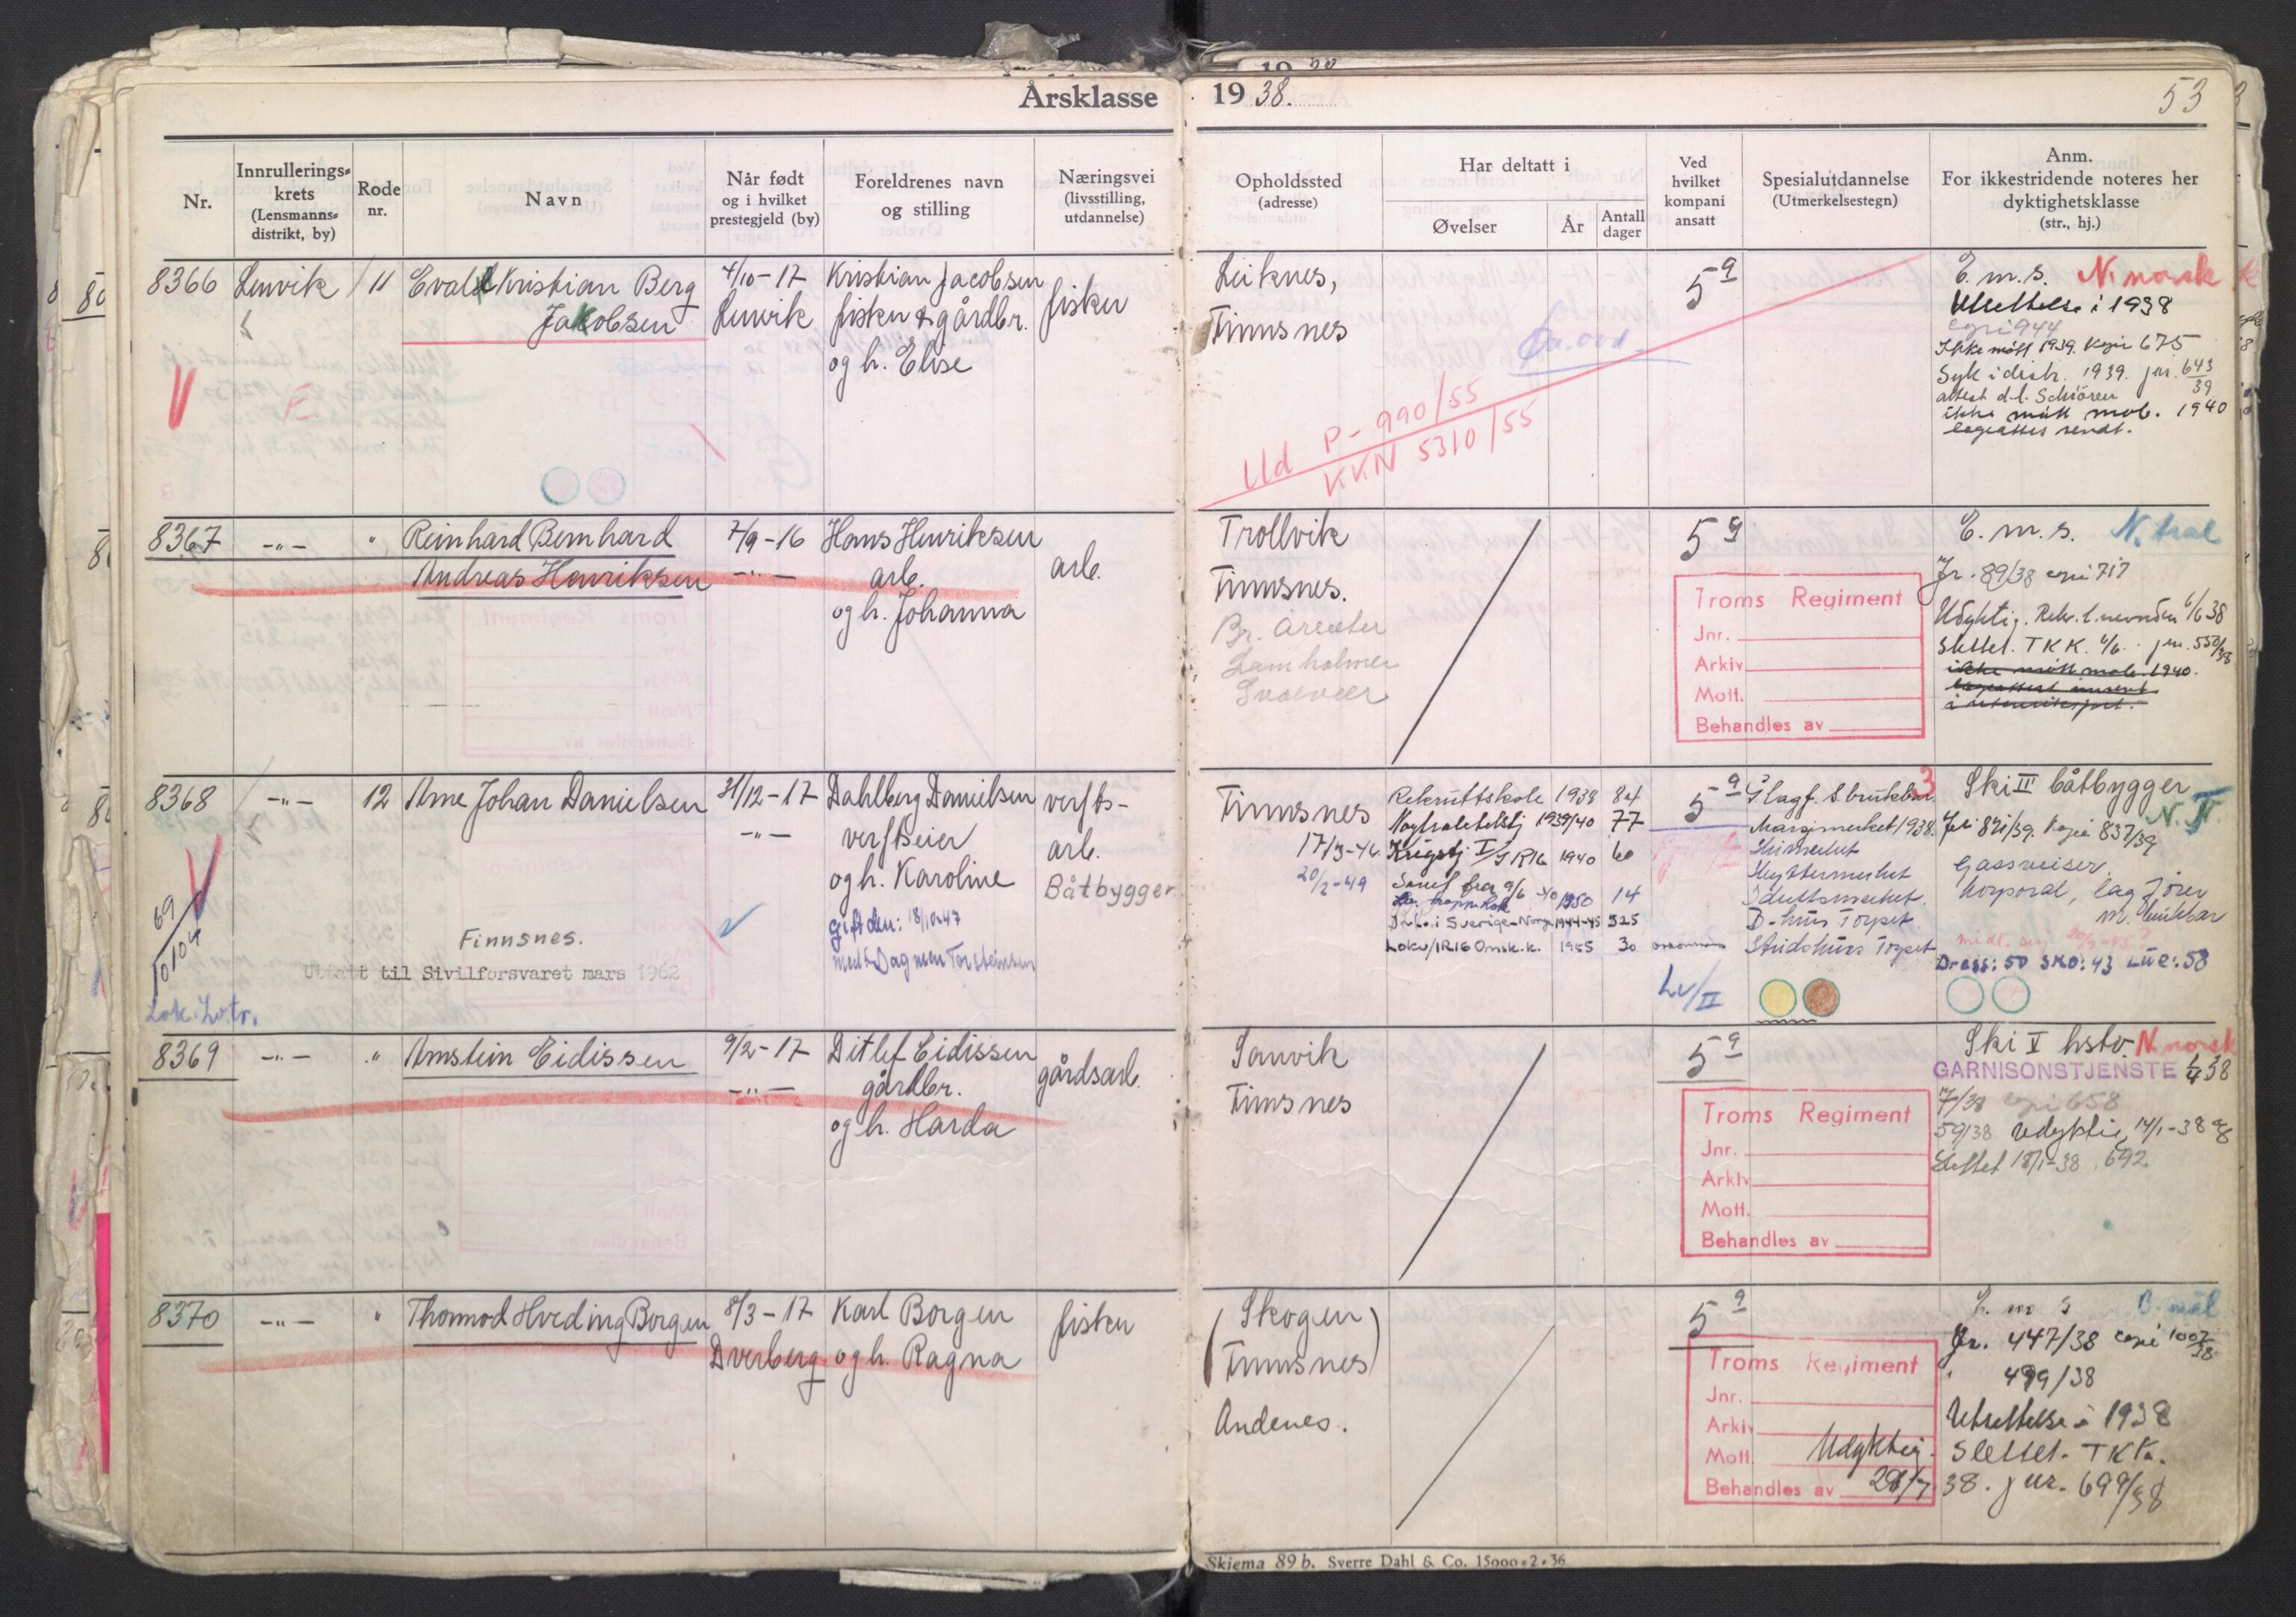 Årsklasse 1938.
53
Nr.
Innrullerings-
krets
(Lensmanns-
distrikt, by)
Rode
nr.
Navn
Når født
og i hvilket
prestegjeld (by)
Foreldrenes navn
og stilling
Næringsvei
(livsstilling,
utdannelse)
Opholdssted
(adresse)
Har deltatt i
Øvelser
År
Antall
dager
Ved
hvilket
kompani
ansatt
Spesialutdannelse
(Utmerkelsestegn)
Anm.
For ikkestridende noteres her
dyktighetsklasse
(str., hj.)
8366
Lenvik
11
Evald Kristian Berg
Jakobsen
4/10-17
Lenvik
Kristian Jacobsen
fisker & gårdbr.
og h. Elise
fisker
Leiknes,
Finnsnes
Ud P-990/55
KKN 5310/55
5 9
E.m.s. N. norsk
Utsettelse i 1938
copi 944
Ikke møtt 1939. Kopi 675
Syk i distr. 1939. jnr. 643/39
attest d.l. Schiören
ikke møtt mob. 1940
legeattest sendt.
8367
-"-
"
Reinhard Bernhard
Andreas Henriksen
7/9-16
-"-
Hans Henriksen
arb.
og h. Johanna
arb.
Trollvik
Finnsnes.
Svolvær
5 9
Troms Regiment
Jnr.
Arkiv
Mott.
Behandles av
E.m.s. N. tral
Jr. 89/38 copi 717
Udyktig. Rekr. t. nevnden 6/6 38
Slettet. TKK. 4/6. jnr. 550/38
ikke møtt mob. 1940.
8368
-"-
12
Arne Johan Danielsen
31/12-17
-"-
Dahlberg Danielsen
verftseier
og h. Karoline
gift den: 18/10-47
med: Dagmar Torsteinsen
verfts-
arb.
Båtbygger
69
10104
Lok. Lv.tr.
Finnsnes.
Utfatt til Sivilforsvaret mars 1962
Finnsnes
17/3-46.
20/2-49
Rekruttskole 1938 84
Nøytralitetstj 1939/40 77
Krigstj I/IR16 1940 60
1950 14
Deltt. i Sverige-Norge 1944-45 525
Lokv/IR16 Omsk.k. 1955 30
5 9
Lv/II
3
Marsjmerket 1938.
Skimerket
Skyttermerket
Idrettsmerket.
Ski III båtbygger
N. N.
Jnr 821/39. Kopi 837/39
Gassreiser.
korporal, lagfører
m. brukbar
Dress: 50 SKO: 43 LUE: 58
8369
-"-
"
Arnstein Eidissen
9/2-17
-"-
Ditlef Eidissen
gårdbr.
og h. Harda
gårdsarb.
Sanvik
Finnsnes
5 9
Troms Regiment
Jnr.
Arkiv
Mott.
Behandles av
Ski V hstv. N. norsk
GARNISONSTJENSTE 1/4 38
7/38 copi 658
59/38 Udyktig 14/1-38
Slettet 18/1-38. 692
8370
-"-
"
Thormod Hveding Borgen
8/3-17
Dverberg
Karl Borgen
og h. Ragna
fisker
(Skogen
Finnsnes)
Andenes.
5 9
Troms Regiment
Jnr.
Arkiv
Mott.
Behandles av
Udyktig.
28/7
E m s B. mål
Jnr. 447/38 copi 1007/38
" 499/38
Utsettelse i 1938
Slettet. TKK.
38. jnr. 699/38
Skjema 89 b. Sverre Dahl & Co. 15000-2-36